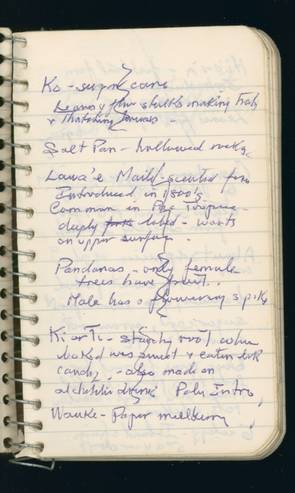 Ko - sugar cane
Leaves & flw stalks making hats
& thatching houses -
Salt Pan - hollowed rocks
Lawa'e Maile-scented fern
Introduced in 1800's
Common in the Tropics
deeply lobed - warts
on upper surface.
Pandanas - only female
trees have fruit.
Male has a flowering spike
Ki or Ti - starchy root when
baked was sweet & eaten
candy. - also made an
alcoholic drink Poly Intro
Wauke - Paper mulberry